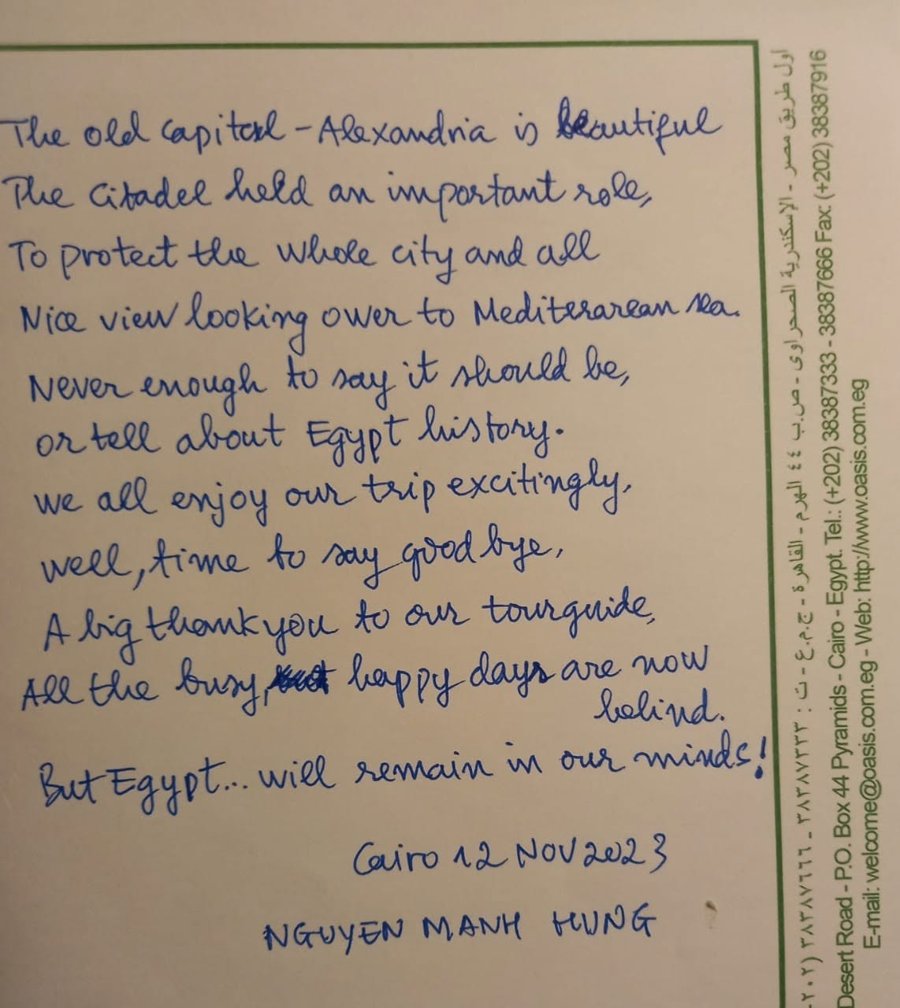 The old capital - Alexandria is beautiful
The Citadel held an important role,
To protect the whole city and all
Nice view looking ower to Mediterarean sea.
Never enough to say it should be,
or tell about Egypt history.
we all enjoy our trip excitingly,
well, time to say good bye,
A big thank you to our tourguide,
All the busy, happy days are now
behind.
But Egypt... will remain in our minds!
Cairo 12 NOV 2023
NGUYEN MANH HUNG
أول طريق مصر - الإسكندرية الصحراوى - ص.ب ٤٤ الهرم - القاهرة - ج.م.ع - ت : ٣٨٣٨٧٣٣٣ - ٣٨٣٨٧٦٦٦ (٢٠٢-
Desert Road - P.O. Box 44 Pyramids - Cairo - Egypt. Tel.: (+202) 38387333 - 38387666 Fax: (+202) 38387916
E-mail: welcome@oasis.com.eg - Web: http://www.oasis.com.eg